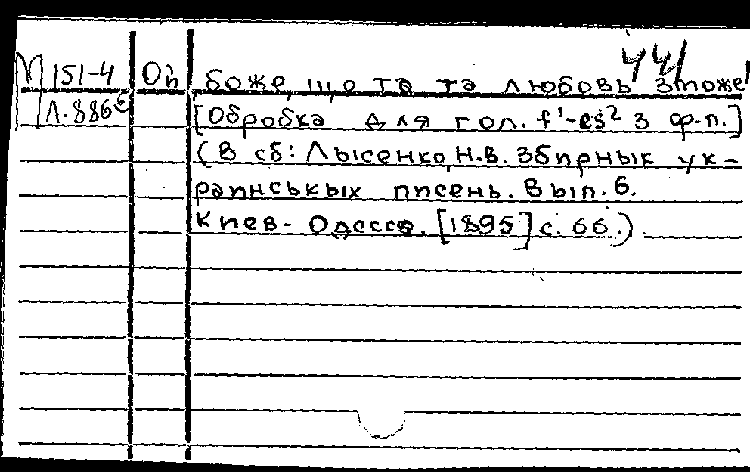 441
М 151-4 Оп Боже, що та та любовь зможе!
Л.886с [Обробка для гол. f¹-es² з ф-п.]
(В сб: Лысенко, Н.В. Збирнык ук-
раинськых писень. Вып. 6.
Киев-Одесса. [1895] с. 66.)